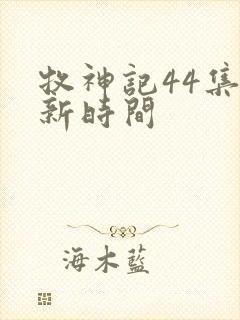 牧神記44集
新時間
海木藍